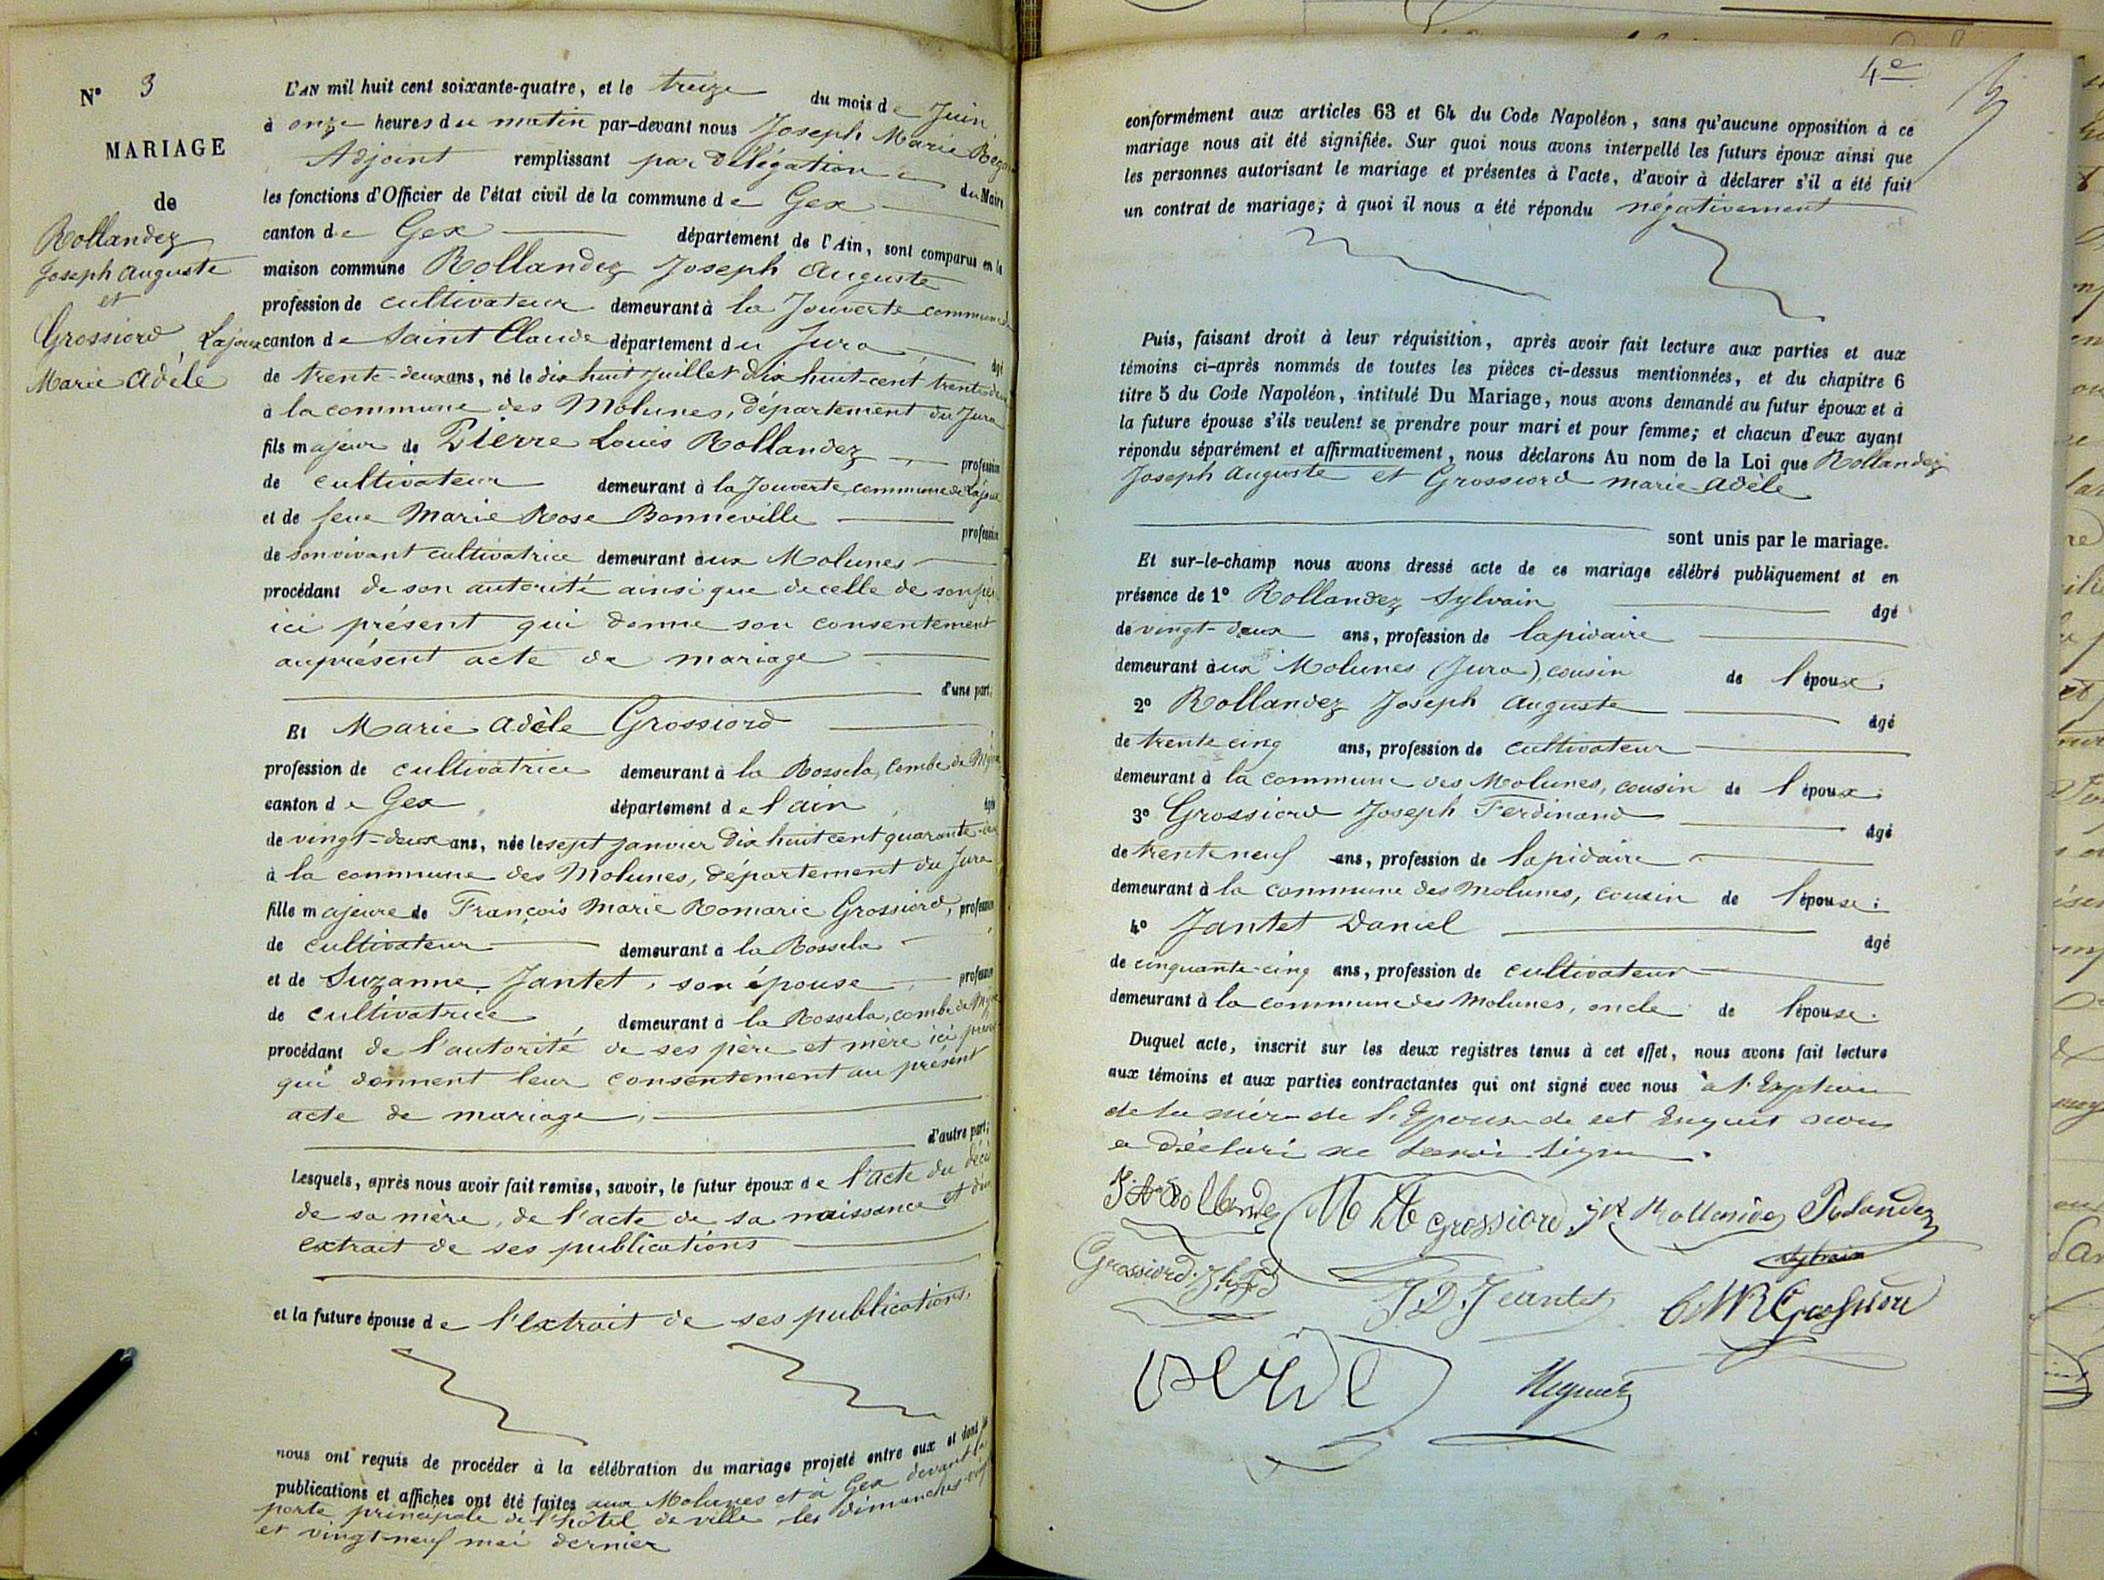 N° 3
MARIAGE
de
Rollandez
Joseph Auguste
et
Grossiord
Marie Adèle
L'AN mil huit cent soixante-quatre, et le treize du mois de Juin
à onze heures du matin par-devant nous Joseph Marie
Adjoint remplissant par délégation du Maire
les fonctions d'Officier de l'état civil de la commune de Gex
canton de Gex département de l'Ain, sont comparus en la
maison commune Rollandez Joseph Auguste
profession de cultivateur demeurant à la Jouverte commune de
Lajoux canton de Saint Claude département du Jura âgé
de trente-deux ans, né le dix huit juillet dix huit-cent trente deux
à la commune des Molunes, département du Jura
fils majeur de Pierre Louis Rollandez profession
de cultivateur demeurant à la Jouverte, commune de Lajoux
et de feue Marie Rose Bonneville profession
de son vivant cultivatrice demeurant aux Molunes
procédant de son autorité ainsi que de celle de son père
ici présent qui donne son consentement
au présent acte de mariage
d'une part;
Et Marie Adèle Grossiord
profession de cultivatrice demeurant à la Rossela, Combe de
canton de Gex département de l'ain âgée
de vingt-deux ans, née le sept janvier dix huit cent quarante-deux
à la commune des Molunes, département du Jura
fille majeure de François Marie Romaric Grossiord, profession
de cultivateur demeurant à la Rossela
et de Suzanne Jantet, son épouse profession
de cultivatrice demeurant à la Rossela, combe de
procédant de l'autorité de ses père et mère ici
qui donnent leur consentement au présent
acte de mariage,
d'autre part;
Lesquels, après nous avoir fait remise, savoir, le futur époux de l'acte du décès
de sa mère, de l'acte de sa naissance et d'un
extrait de ses publications
et la future épouse de l'extrait de ses publications,
nous ont requis de procéder à la célébration du mariage projeté entre eux et dont les
publications et affiches ont été faites aux Molunes et à Gex devant la
porte principale de l'hôtel de ville, les dimanches vingt
et vingt-neuf mai dernier
4e
conformément aux articles 63 et 64 du Code Napoléon, sans qu'aucune opposition à ce
mariage nous ait été signifiée. Sur quoi nous avons interpellé les futurs époux ainsi que
les personnes autorisant le mariage et présentes à l'acte, d'avoir à déclarer s'il a été fait
un contrat de mariage; à quoi il nous a été répondu négativement
Puis, faisant droit à leur réquisition, après avoir fait lecture aux parties et aux
témoins ci-après nommés de toutes les pièces ci-dessus mentionnées, et du chapitre 6
titre 5 du Code Napoléon, intitulé Du Mariage, nous avons demandé au futur époux et à
la future épouse s'ils veulent se prendre pour mari et pour femme; et chacun d'eux ayant
répondu séparément et affirmativement, nous déclarons Au nom de la Loi que Rollandez
Joseph Auguste et Grossiord Marie Adèle
sont unis par le mariage.
Et sur-le-champ nous avons dressé acte de ce mariage célébré publiquement et en
présence de 1° Rollandez Sylvain âgé
de vingt-deux ans, profession de lapidaire
demeurant aux Molunes (Jura), cousin de l'époux;
2° Rollandez Joseph Auguste âgé
de trente cinq ans, profession de cultivateur
demeurant à la commune des Molunes, cousin de l'époux;
3° Grossiord Joseph Ferdinand âgé
de trente neuf ans, profession de lapidaire
demeurant à la commune des Molunes, cousin de l'épouse;
4° Jantet Daniel âgé
de cinquante-cinq ans, profession de cultivateur
demeurant à la commune des Molunes, oncle de l'épouse.
Duquel acte, inscrit sur les deux registres tenus à cet effet, nous avons fait lecture
aux témoins et aux parties contractantes qui ont signé avec nous à l'Exption
de la mère de l'Epouse de cet Enquis nous
a Déclaré ne savoir signer.
J A Rollandez M A Grossiord Rollandez Rolandez
Sylvain
Grossiord Jh Fd J. D. Jeantet Grossiord